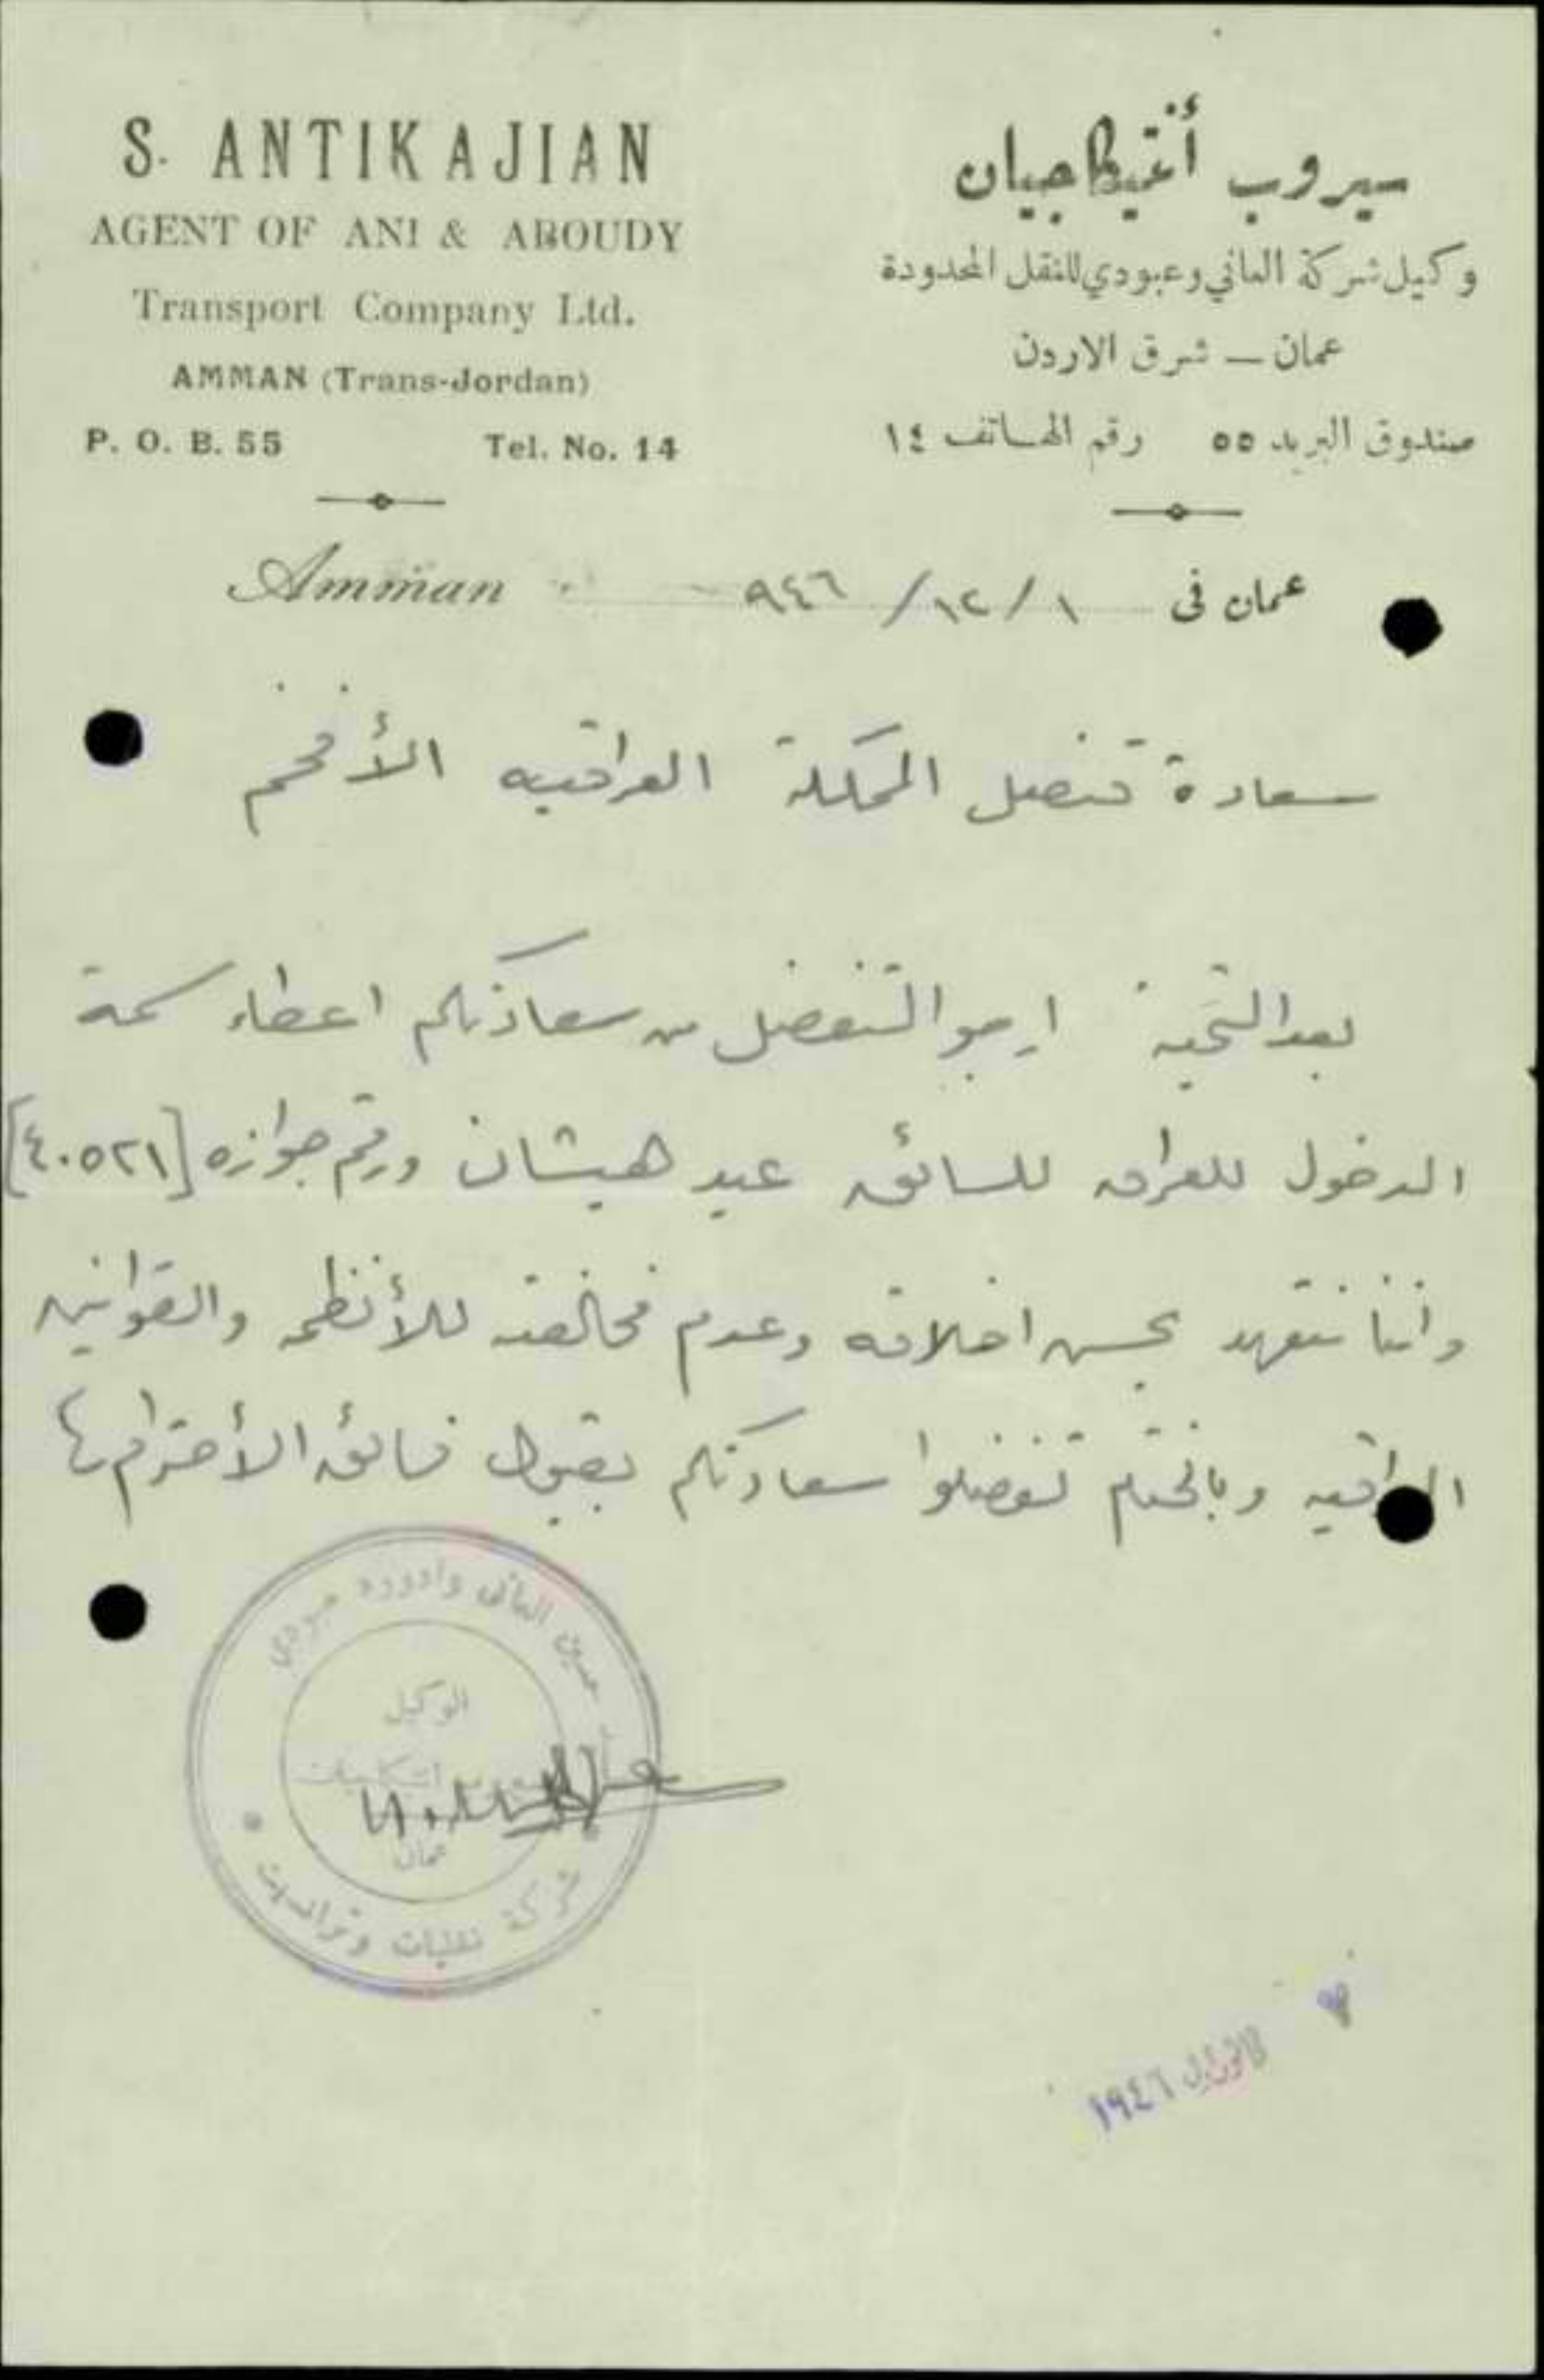 S. ANTIKAJIAN
AGENT OF ANI & ABOUDY
Transport Company Ltd.
AMMAN (Trans-Jordan)
P. O. B. 55 Tel. No. 14
سيروب أنتيكاجيان
وكيل شركة العاني وعبودي للنقل المحدودة
عمان — شرق الاردن
صندوق البريد ٥٥ رقم الهاتف ١٤
Amman
عمان في ١/١٢/٩٤٦
سعادة قنصل المملكة العراقيه الأفخم
بعد التحية ارجو التفضل من سعادتكم اعطاء سمة
الدخول للعراق للسائق عيد هيشان ورقم جوازه [٤٠٥٢١]
واننا نتعهد بحسن اخلاقه وعدم مخالفته للأنظمه والقوانين
العراقيه وبالختام تفضلوا سعادتكم بقبول فائق الأحترام
حسين العاني وادوره عبودي
الوكيل
عمان
شركة نقليات وترانسيت
١٩٤٦